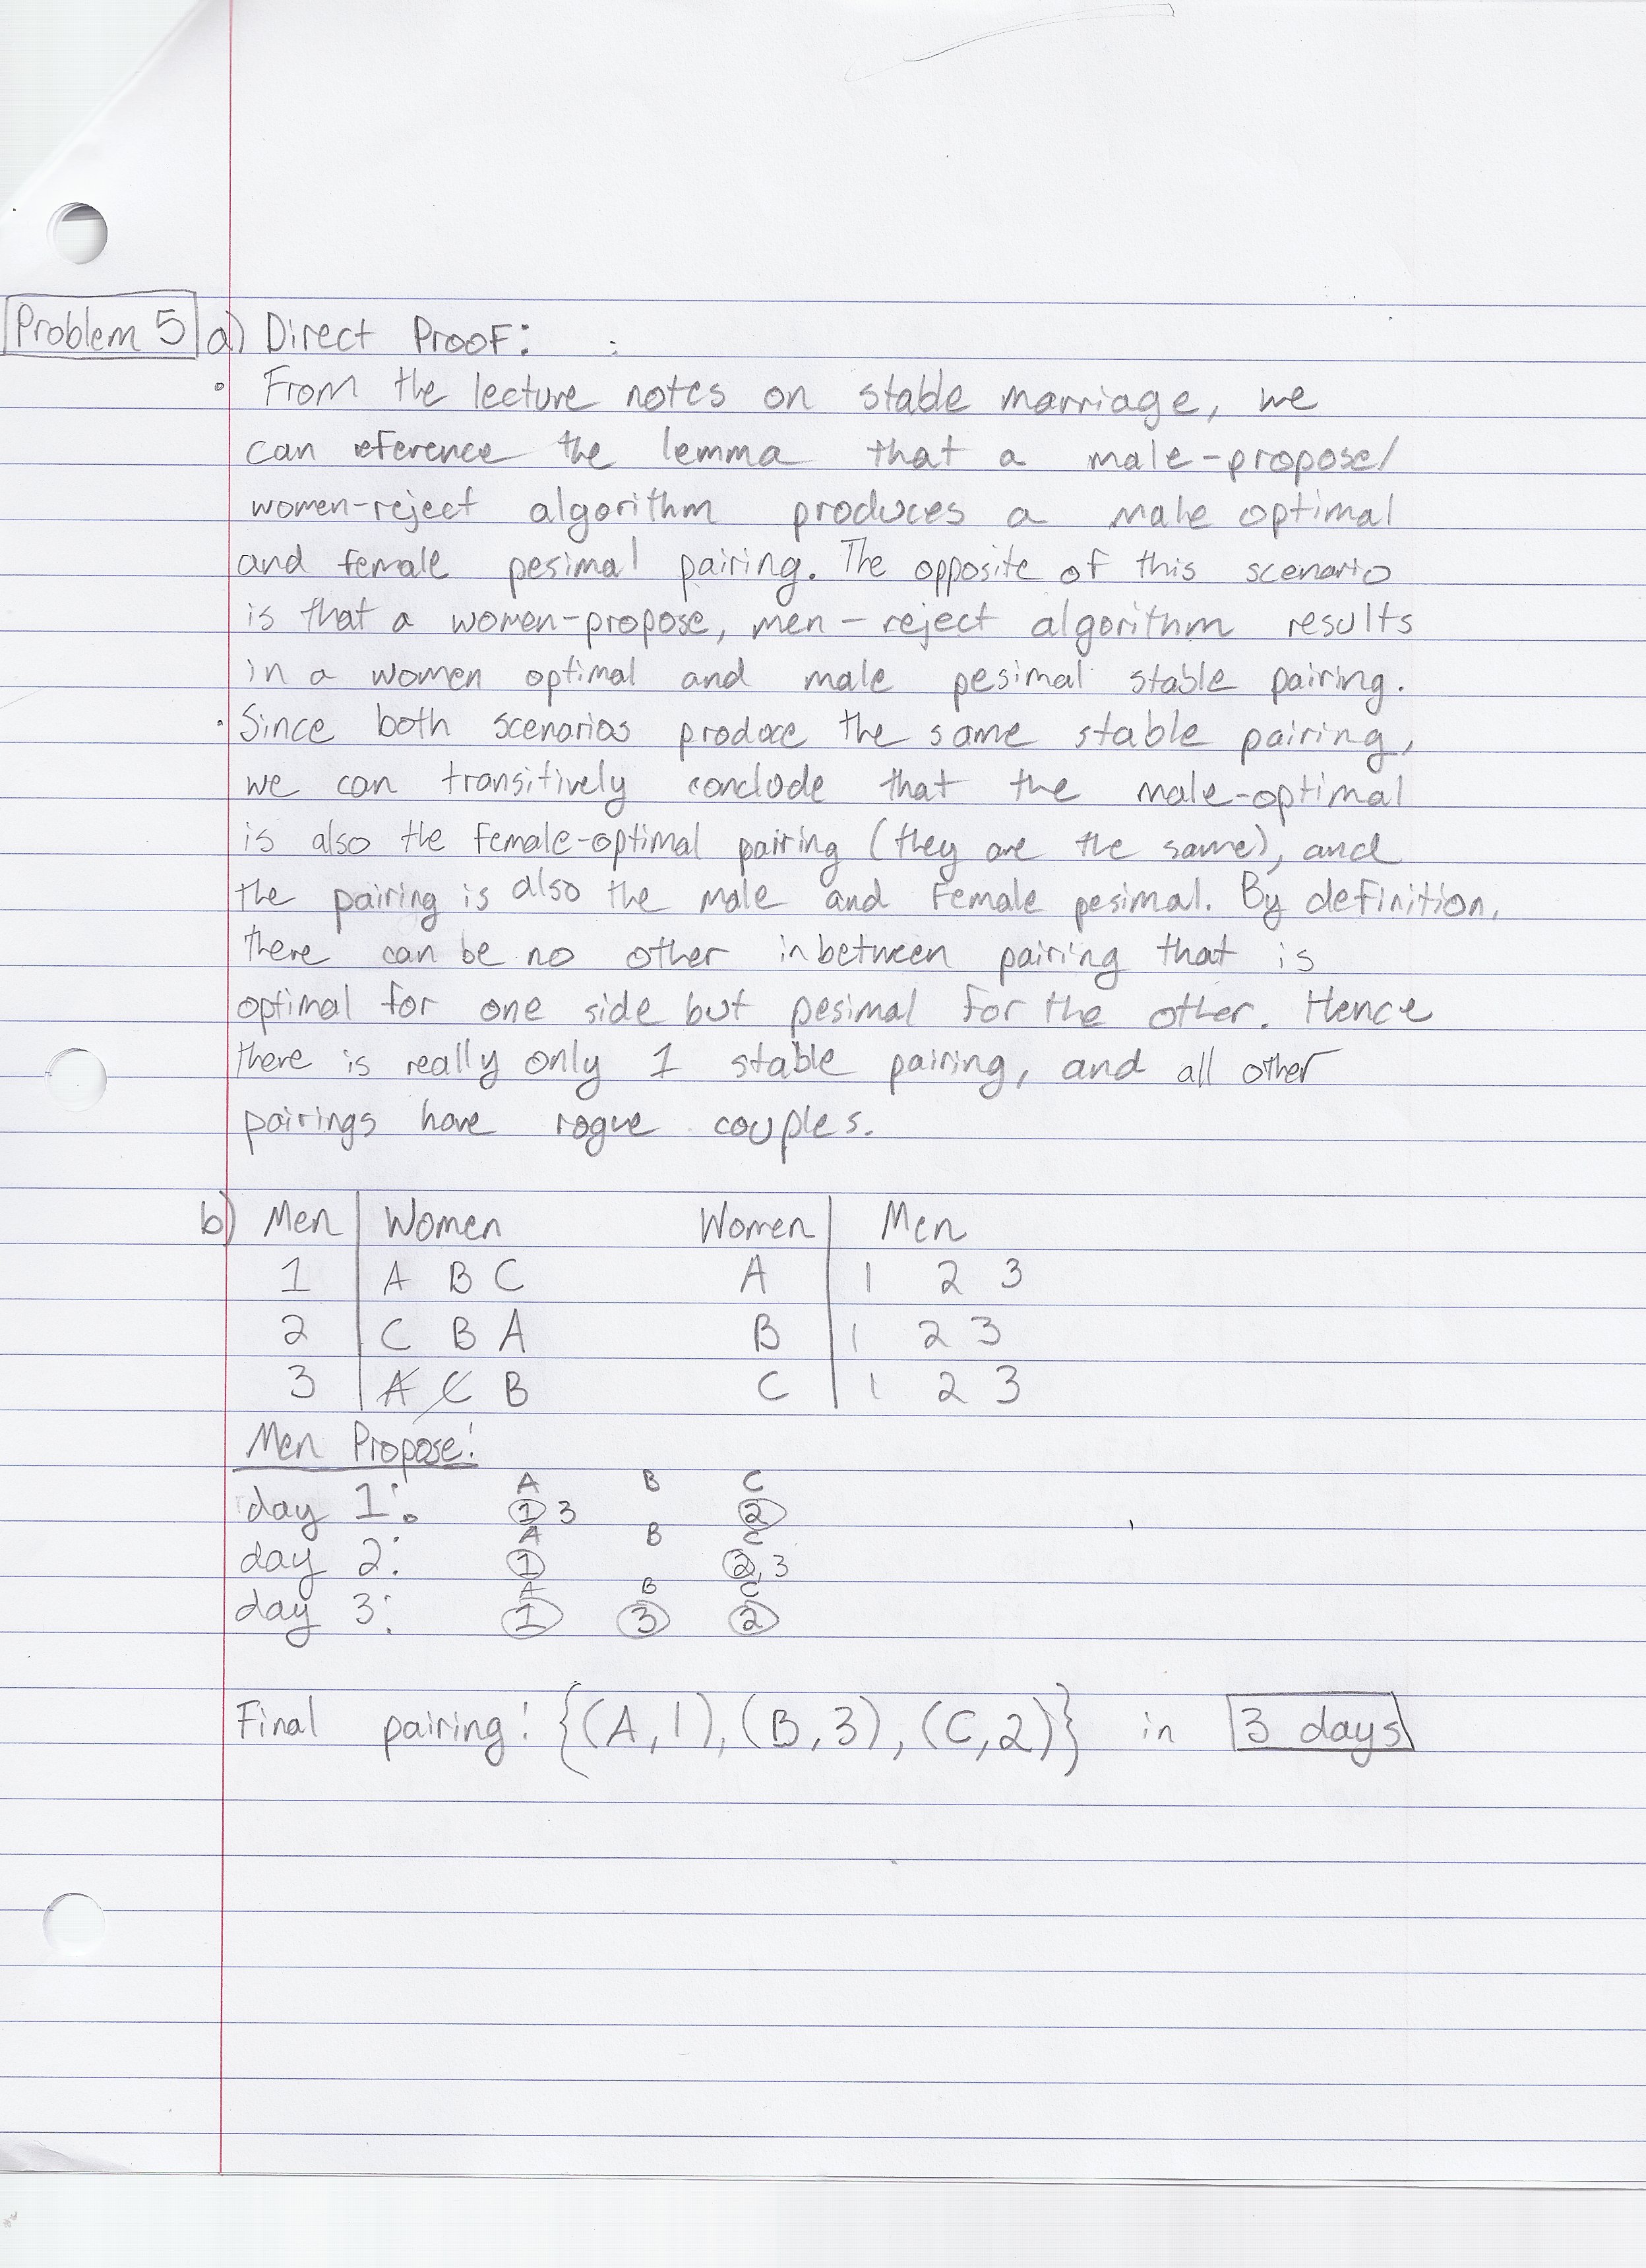 Problem 5 a) Direct Proof:
• From the lecture notes on stable marriage, we
can reference the lemma that a male-propose/
women-reject algorithm produces a male optimal
and female pesimal pairing. The opposite of this scenario
is that a women-propose, men-reject algorithm results
in a women optimal and male pesimal stable pairing.
• Since both scenarios produce the same stable pairing,
we can transitively conclude that the male-optimal
is also the female-optimal pairing (they are the same), and
the pairing is also the male and female pesimal. By definition,
there can be no other inbetween pairing that is
optimal for one side but pesimal for the other. Hence
there is really only 1 stable pairing, and all other
pairings have rogue couples.
b) Men | Women Women | Men
1 | A B C A | 1 2 3
2 | C B A B | 1 2 3
3 | A C B C | 1 2 3
Men Propose:
A B C
day 1: 1 3 2
A B C
day 2: 1 2, 3
A B C
day 3: 1 3 2
Final pairing: {(A,1), (B,3), (C,2)} in 3 days